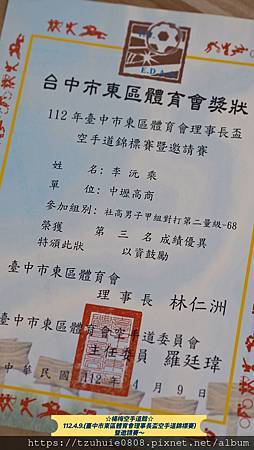 E.D.A
台中市東區體育會獎狀
112年臺中市東區體育會理事長盃
空手道錦標賽暨邀請賽
姓名：李沅乘
單位：中壢高商
參加組別：社高男子甲組對打第二量級-68
榮獲 第三名成績優異
特頒此狀 以資鼓勵
臺中市東區體育會
理事長 林仁洲
臺中市東區體育會空手道委員會
主任委員 羅廷瑋
中華民國 112年4月9日
☆楊梅空手道館☆
112.4.9.(臺中市東區體育會理事長盃空手道錦標賽)
暨邀請賽～
https://tzuhuie0808.pixnet.net/album